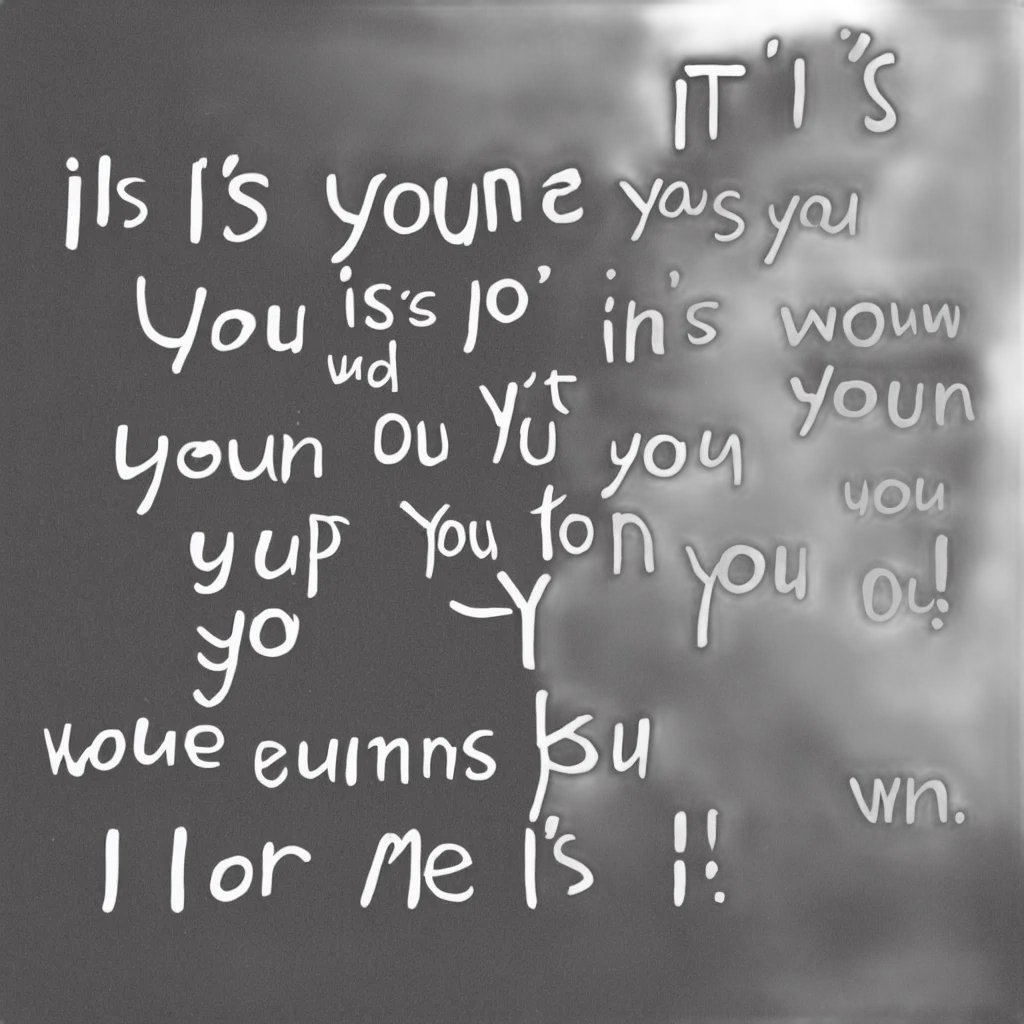 IT'I"S
ils I's youne yas you
You is's jo' in's wouw
wd
youn ou yu't you youn
you
yup You ton you ou!
yo -Y
woue eumns su
wn.
I lor Me I's !!